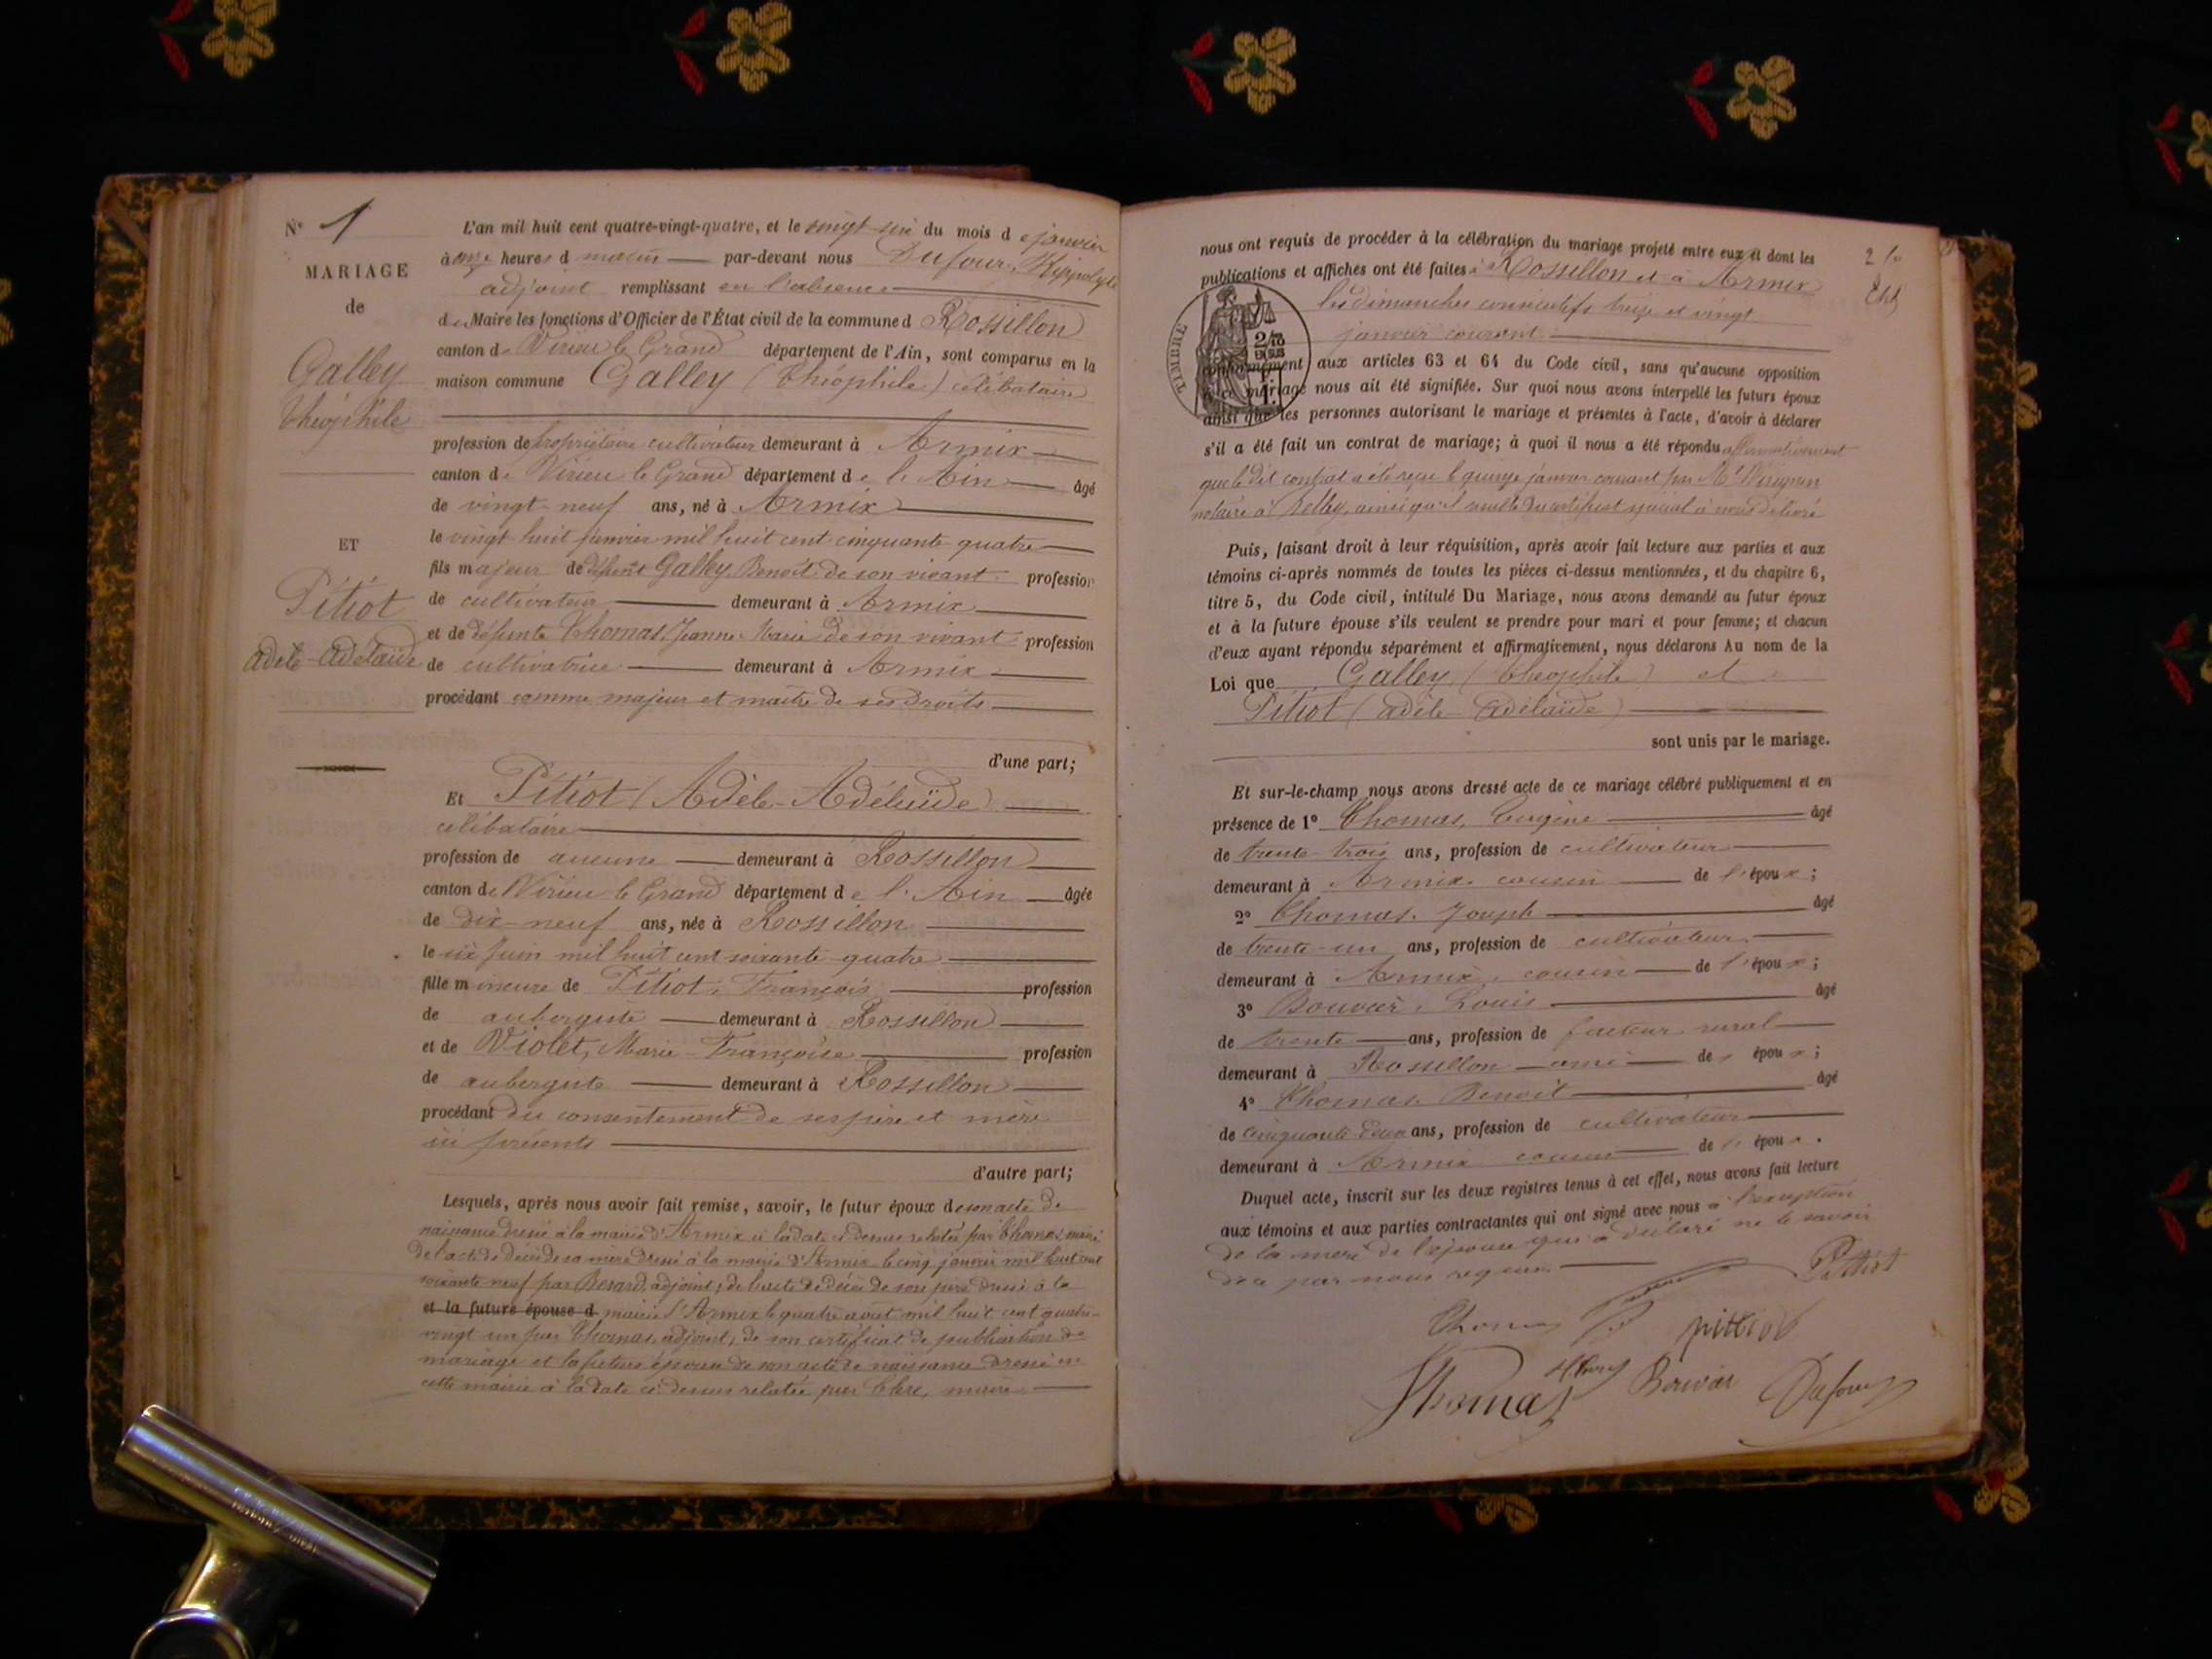 N° 1
MARIAGE
de
Galley
Théophile
ET
Pitiot
Adèle-Adélaïde
L'an mil huit cent quatre-vingt-quatre, et le vingt-six du mois de janvier
à onze heures d matin par-devant nous Dufour, Hippolyte
adjoint remplissant en l'absence
du Maire les fonctions d'Officier de l'État civil de la commune d Rossillon
canton de Virieu le Grand département de l'Ain, sont comparus en la
maison commune Galley (Théophile) célibataire
profession de propriétaire cultivateur demeurant à Armix
canton de Virieu le Grand département de l'Ain âgé
de vingt-neuf ans, né à Armix
le vingt huit janvier mil huit cent cinquante quatre
fils majeur de défunt Galley, Benoit de son vivant profession
de cultivateur demeurant à Armix
et de défunte Thomas, Jeanne-Marie de son vivant profession
de cultivatrice demeurant à Armix
procédant comme majeur et maître de ses droits
d'une part;
Et Pitiot (Adèle-Adélaïde)
célibataire
profession de aucune demeurant à Rossillon
canton de Virieu le Grand département de l'Ain âgée
de dix-neuf ans, née à Rossillon
le six juin mil huit cent soixante quatre
fille mineure de Pitiot, François profession
de aubergiste demeurant à Rossillon
et de Violet, Marie-Françoise profession
de aubergiste demeurant à Rossillon
procédant du consentement de ses père et mère
ici présents
d'autre part;
Lesquels, après nous avoir fait remise, savoir, le futur époux de son acte de
naissance dressé à la mairie d'Armix à la date ci-dessus relatée par Thomas, maire
de l'acte de décès de sa mère dressé à la mairie d'Armix le cinq janvier mil huit cent
soixante neuf par Besard, adjoint; de l'acte de décès de son père dressé à la
et la future épouse d mairie d'Armix le quatre août mil huit cent quatre-
vingt un par Thomas, adjoint, de son certificat de publication de
mariage et la future épouse de son acte de naissance dressé en
cette mairie à la date ci-dessus relatée par Clerc, maire
nous ont requis de procéder à la célébration du mariage projeté entre eux et dont les
publications et affiches ont été faites à Rossillon et à Armix
les dimanches consécutifs treize et vingt
janvier courant
TIMBRE
conformément aux articles 63 et 64 du Code civil, sans qu'aucune opposition
à ce mariage nous ait été signifiée. Sur quoi nous avons interpellé les futurs époux
ainsi que les personnes autorisant le mariage et présentes à l'acte, d'avoir à déclarer
s'il a été fait un contrat de mariage; à quoi il nous a été répondu affirmativement
que le dit contrat a été reçu le quinze janvier courant par Me
notaire à Belley, ainsi qu'il résulte du certificat spécial à nous délivré
Puis, faisant droit à leur réquisition, après avoir fait lecture aux parties et aux
témoins ci-après nommés de toutes les pièces ci-dessus mentionnées, et du chapitre 6,
titre 5, du Code civil, intitulé Du Mariage, nous avons demandé au futur époux
et à la future épouse s'ils veulent se prendre pour mari et pour femme; et chacun
d'eux ayant répondu séparément et affirmativement, nous déclarons Au nom de la
Loi que Galley (Théophile) et
Pitiot (Adèle-Adélaïde)
sont unis par le mariage.
Et sur-le-champ nous avons dressé acte de ce mariage célébré publiquement et en
présence de 1° Thomas, Eugène âgé
de trente-trois ans, profession de cultivateur
demeurant à Armix cousin de l'époux;
2° Thomas, Joseph âgé
de trente-un ans, profession de cultivateur
demeurant à Armix, cousin de l'époux;
3° Bouvier, Louis âgé
de trente ans, profession de facteur rural
demeurant à Rossillon ami de l'époux;
4° Thomas, Benoit âgé
de cinquante deux ans, profession de cultivateur
demeurant à Armix cousin de l'époux.
Duquel acte, inscrit sur les deux registres tenus à cet effet, nous avons fait lecture
aux témoins et aux parties contractantes qui ont signé avec nous à l'exception
de la mère de l'épouse qui a déclaré ne le savoir
de ce par nous requise
Pithiot
Thomas
pittiot
Thomas
Dufour